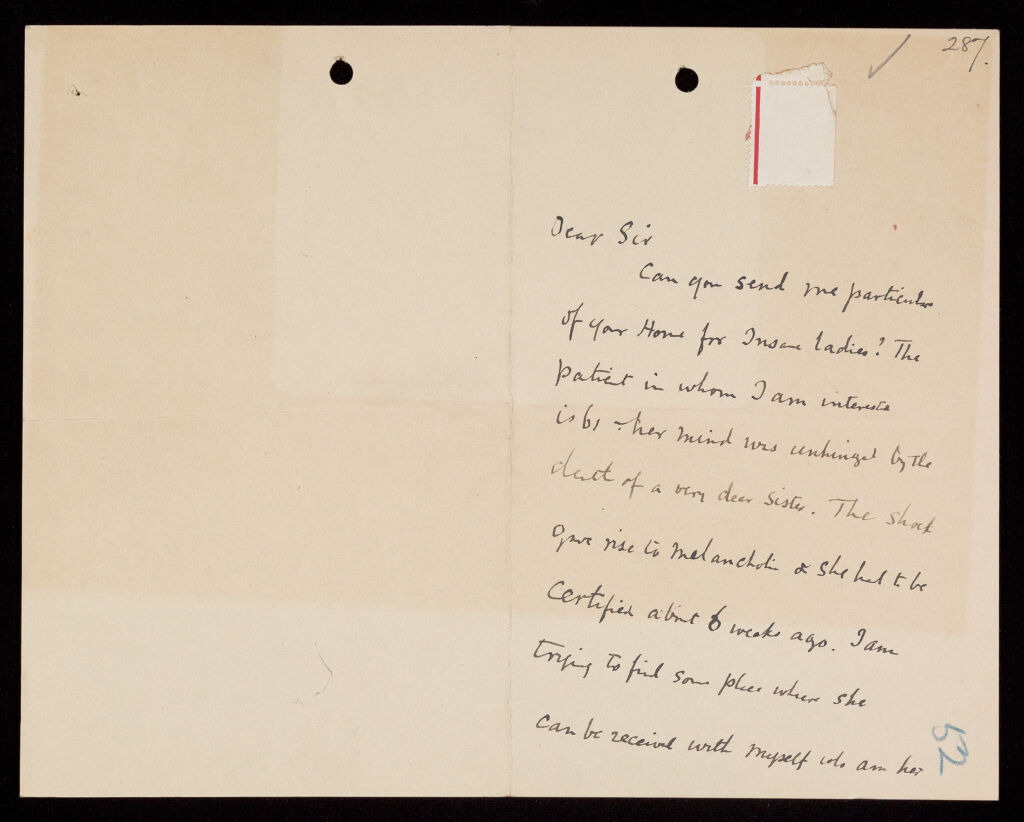 287.
Dear Sir
Can you send me particulars
of your Home for Insane Ladies? The
patient in whom I am interested
is 61 - her mind was unhinged by the
death of a very dear sister. The shock
gave rise to melancholia & she had to be
certified about 6 weeks ago. I am
trying to find some place where she
can be received with myself who am her
52